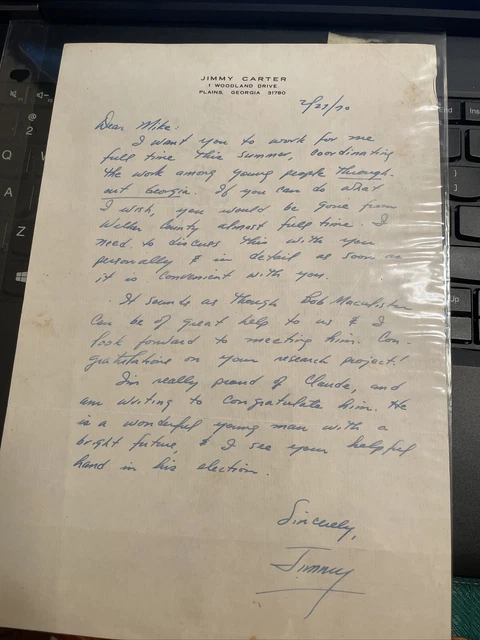 JIMMY CARTER
1 WOODLAND DRIVE
PLAINS, GEORGIA 31780
2/23/70
Dear Mike:
I want you to work for me
full time this summer, coordinating
the work among young people through-
out Georgia. If you can do what
I wish, you would be gone from
County almost full time. I
need to discuss this with you
personally & in detail as soon as
it is convenient with you.
It sounds as though Bob
can be of great help to us & I
look forward to meeting him. Con-
gratulations on your research project!
I'm really proud of Claude, and
am writing to congratulate him. He
is a wonderful young man with a
bright future, & I see your helpful
hand in his election.
Sincerely,
Jimmy